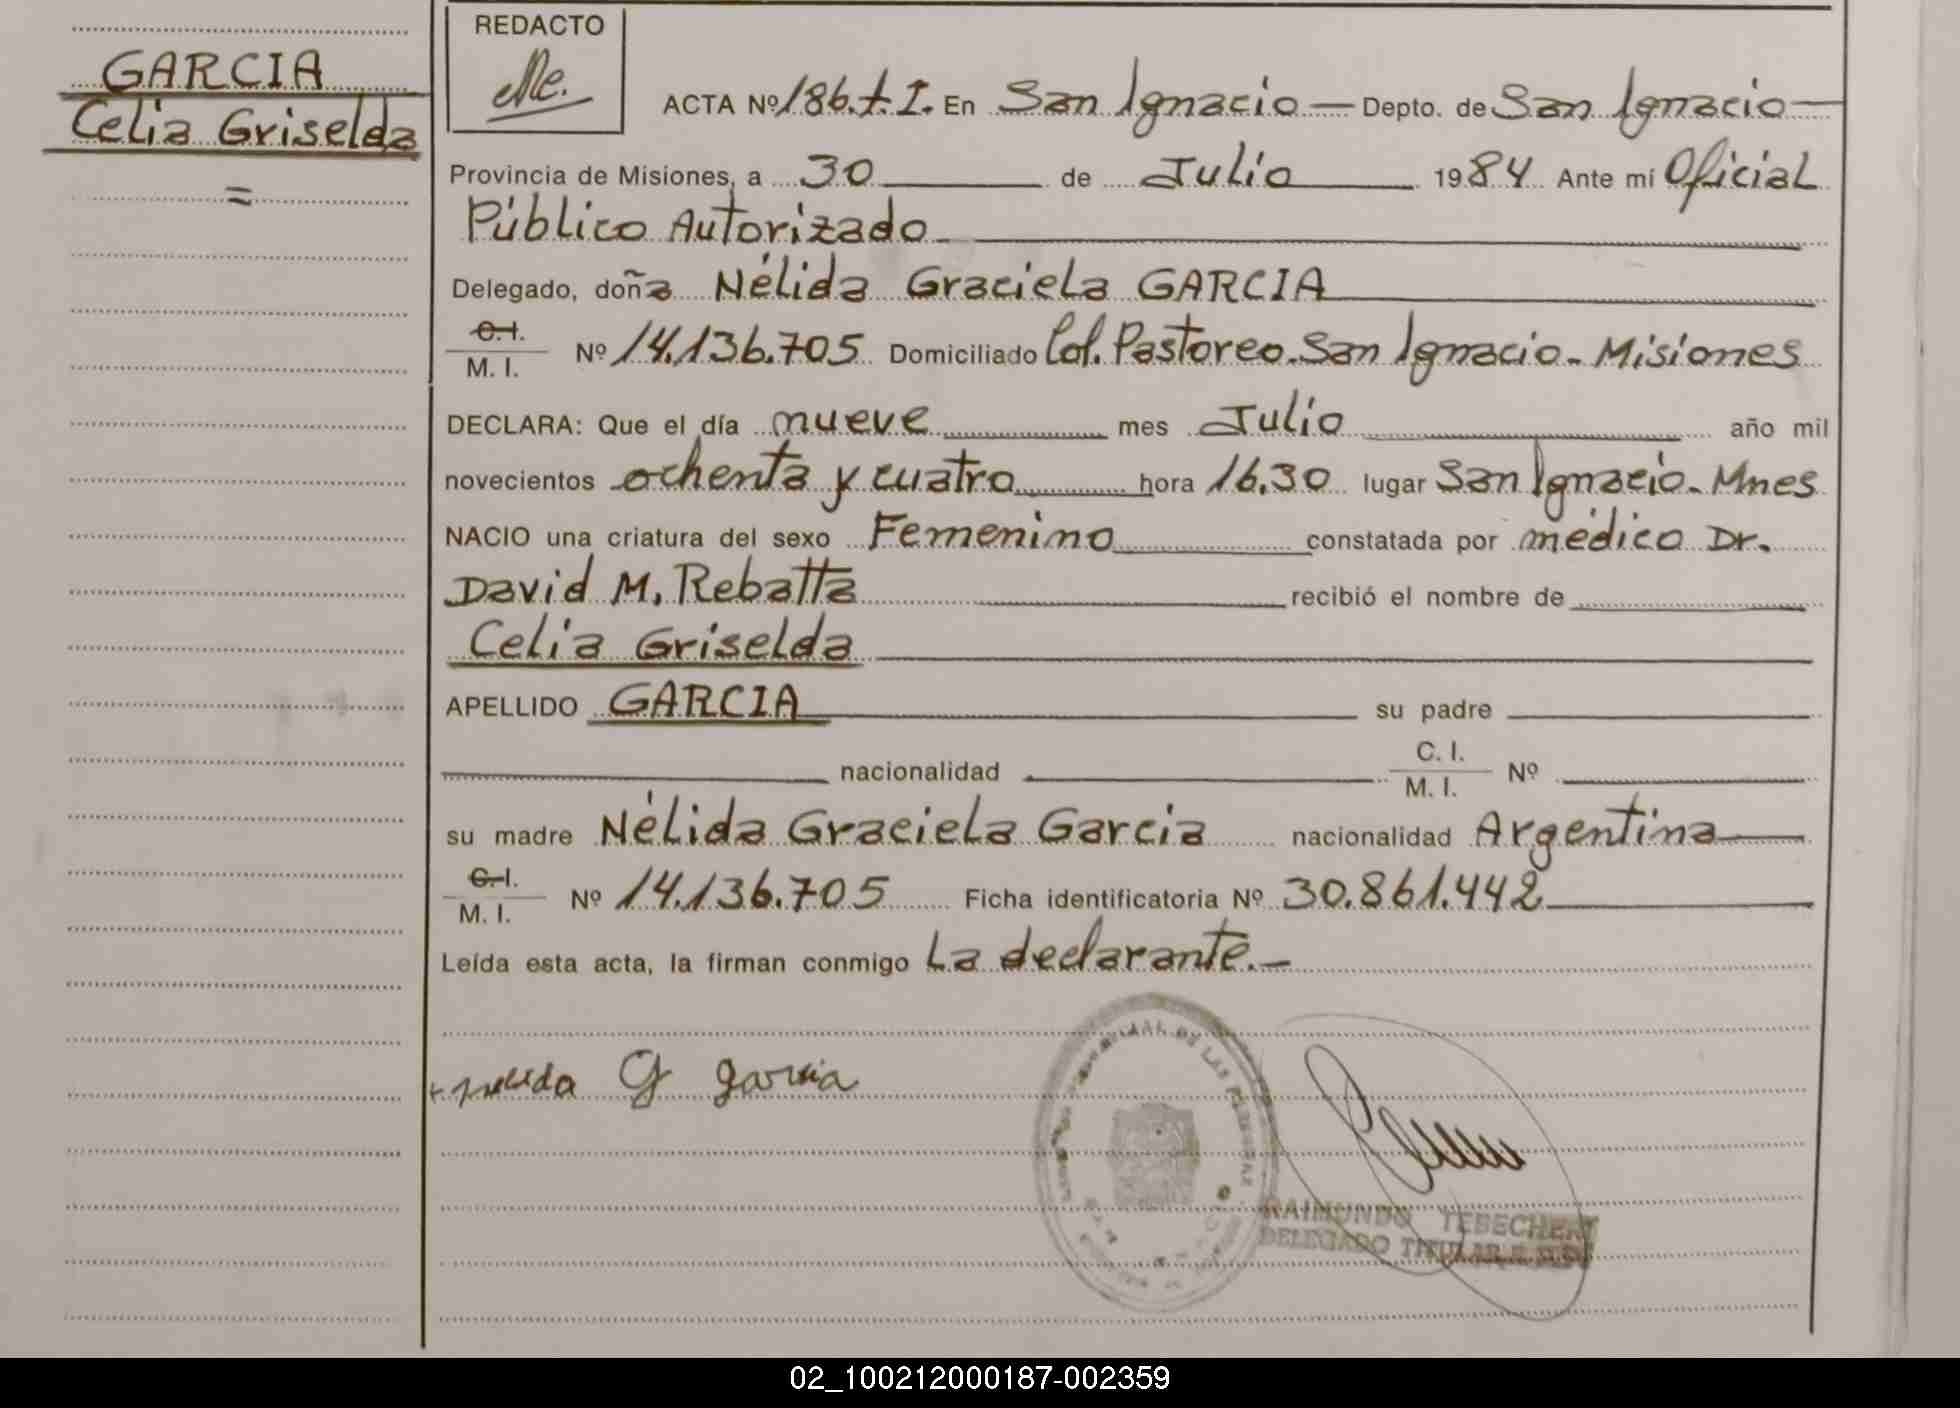 GARCIA
Celia Griselda
=
REDACTO
ACTA Nº 186.t.I. En San Ignacio — Depto. de San Ignacio —
Provincia de Misiones, a 30 de Julio 1984 Ante mí Oficial
Público Autorizado
Delegado, doña Nélida Graciela GARCIA
C.I.
M. I. Nº 14.136.705 Domiciliado Col. Pastoreo. San Ignacio - Misiones
DECLARA: Que el día nueve mes Julio año mil
novecientos ochenta y cuatro hora 16.30 lugar San Ignacio. Mnes
NACIO una criatura del sexo Femenino constatada por médico Dr.
David M. Rebatta recibió el nombre de
Celia Griselda
APELLIDO GARCIA su padre
nacionalidad C. I.
M. I. Nº
su madre Nélida Graciela Garcia nacionalidad Argentina
C.I.
M. I. Nº 14.136.705 Ficha identificatoria Nº 30.861.442
Leída esta acta, la firman conmigo La declarante.—
+ nelida G garcia
DE LAS PERSONAS
RAIMUNDO TEBECHERY
DELEGADO TITULAR
02_100212000187-002359